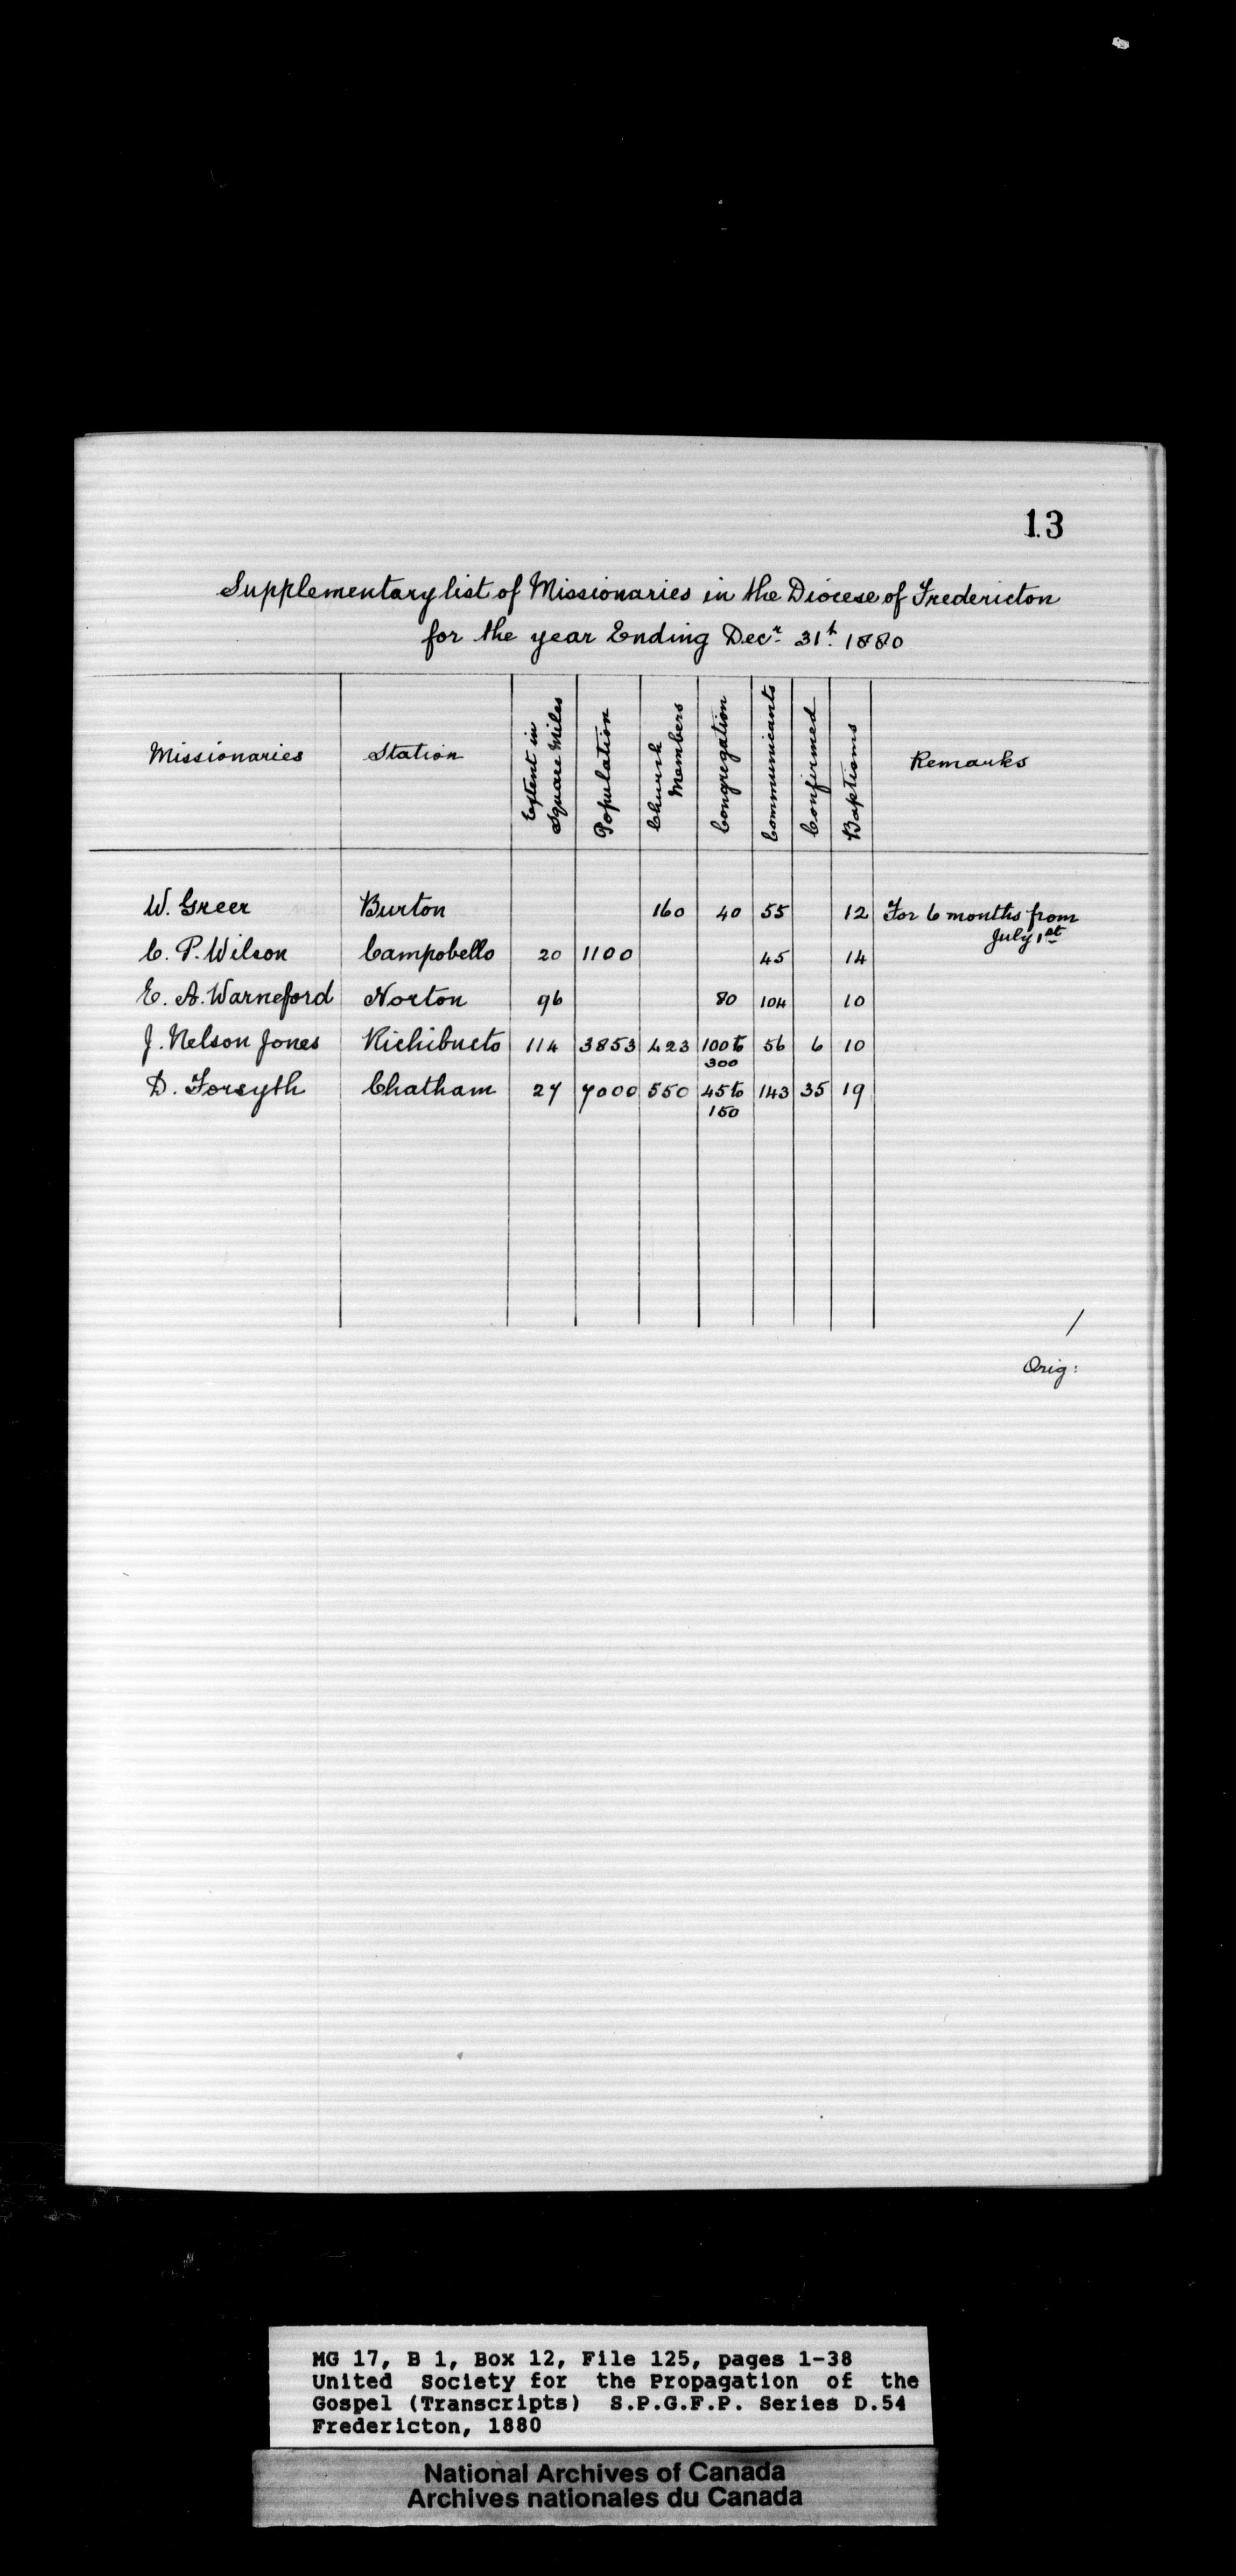 13
Supplementary list of Missionaries in the Diocese of Fredericton
for the year Ending Decr. 31t. 1880
Missionaries Station Extent in Square Miles Population Church Members Congregation Communicants Confirmed Baptisms Remarks
W. Greer Burton 160 40 55 12 For 6 months from
July 1st
C. P. Wilson Campobello 20 1100 45 14
E. A. Warneford Norton 96 80 104 10
J. Nelson Jones Richibucto 114 3853 423 100 to 56 6 10
300
D. Forsyth Chatham 27 7000 550 45 to 143 35 19
150
/
Orig:
MG 17, B 1, Box 12, File 125, pages 1-38
United Society for the Propagation of the
Gospel (Transcripts) S.P.G.F.P. Series D.54
Fredericton, 1880
National Archives of Canada
Archives nationales du Canada